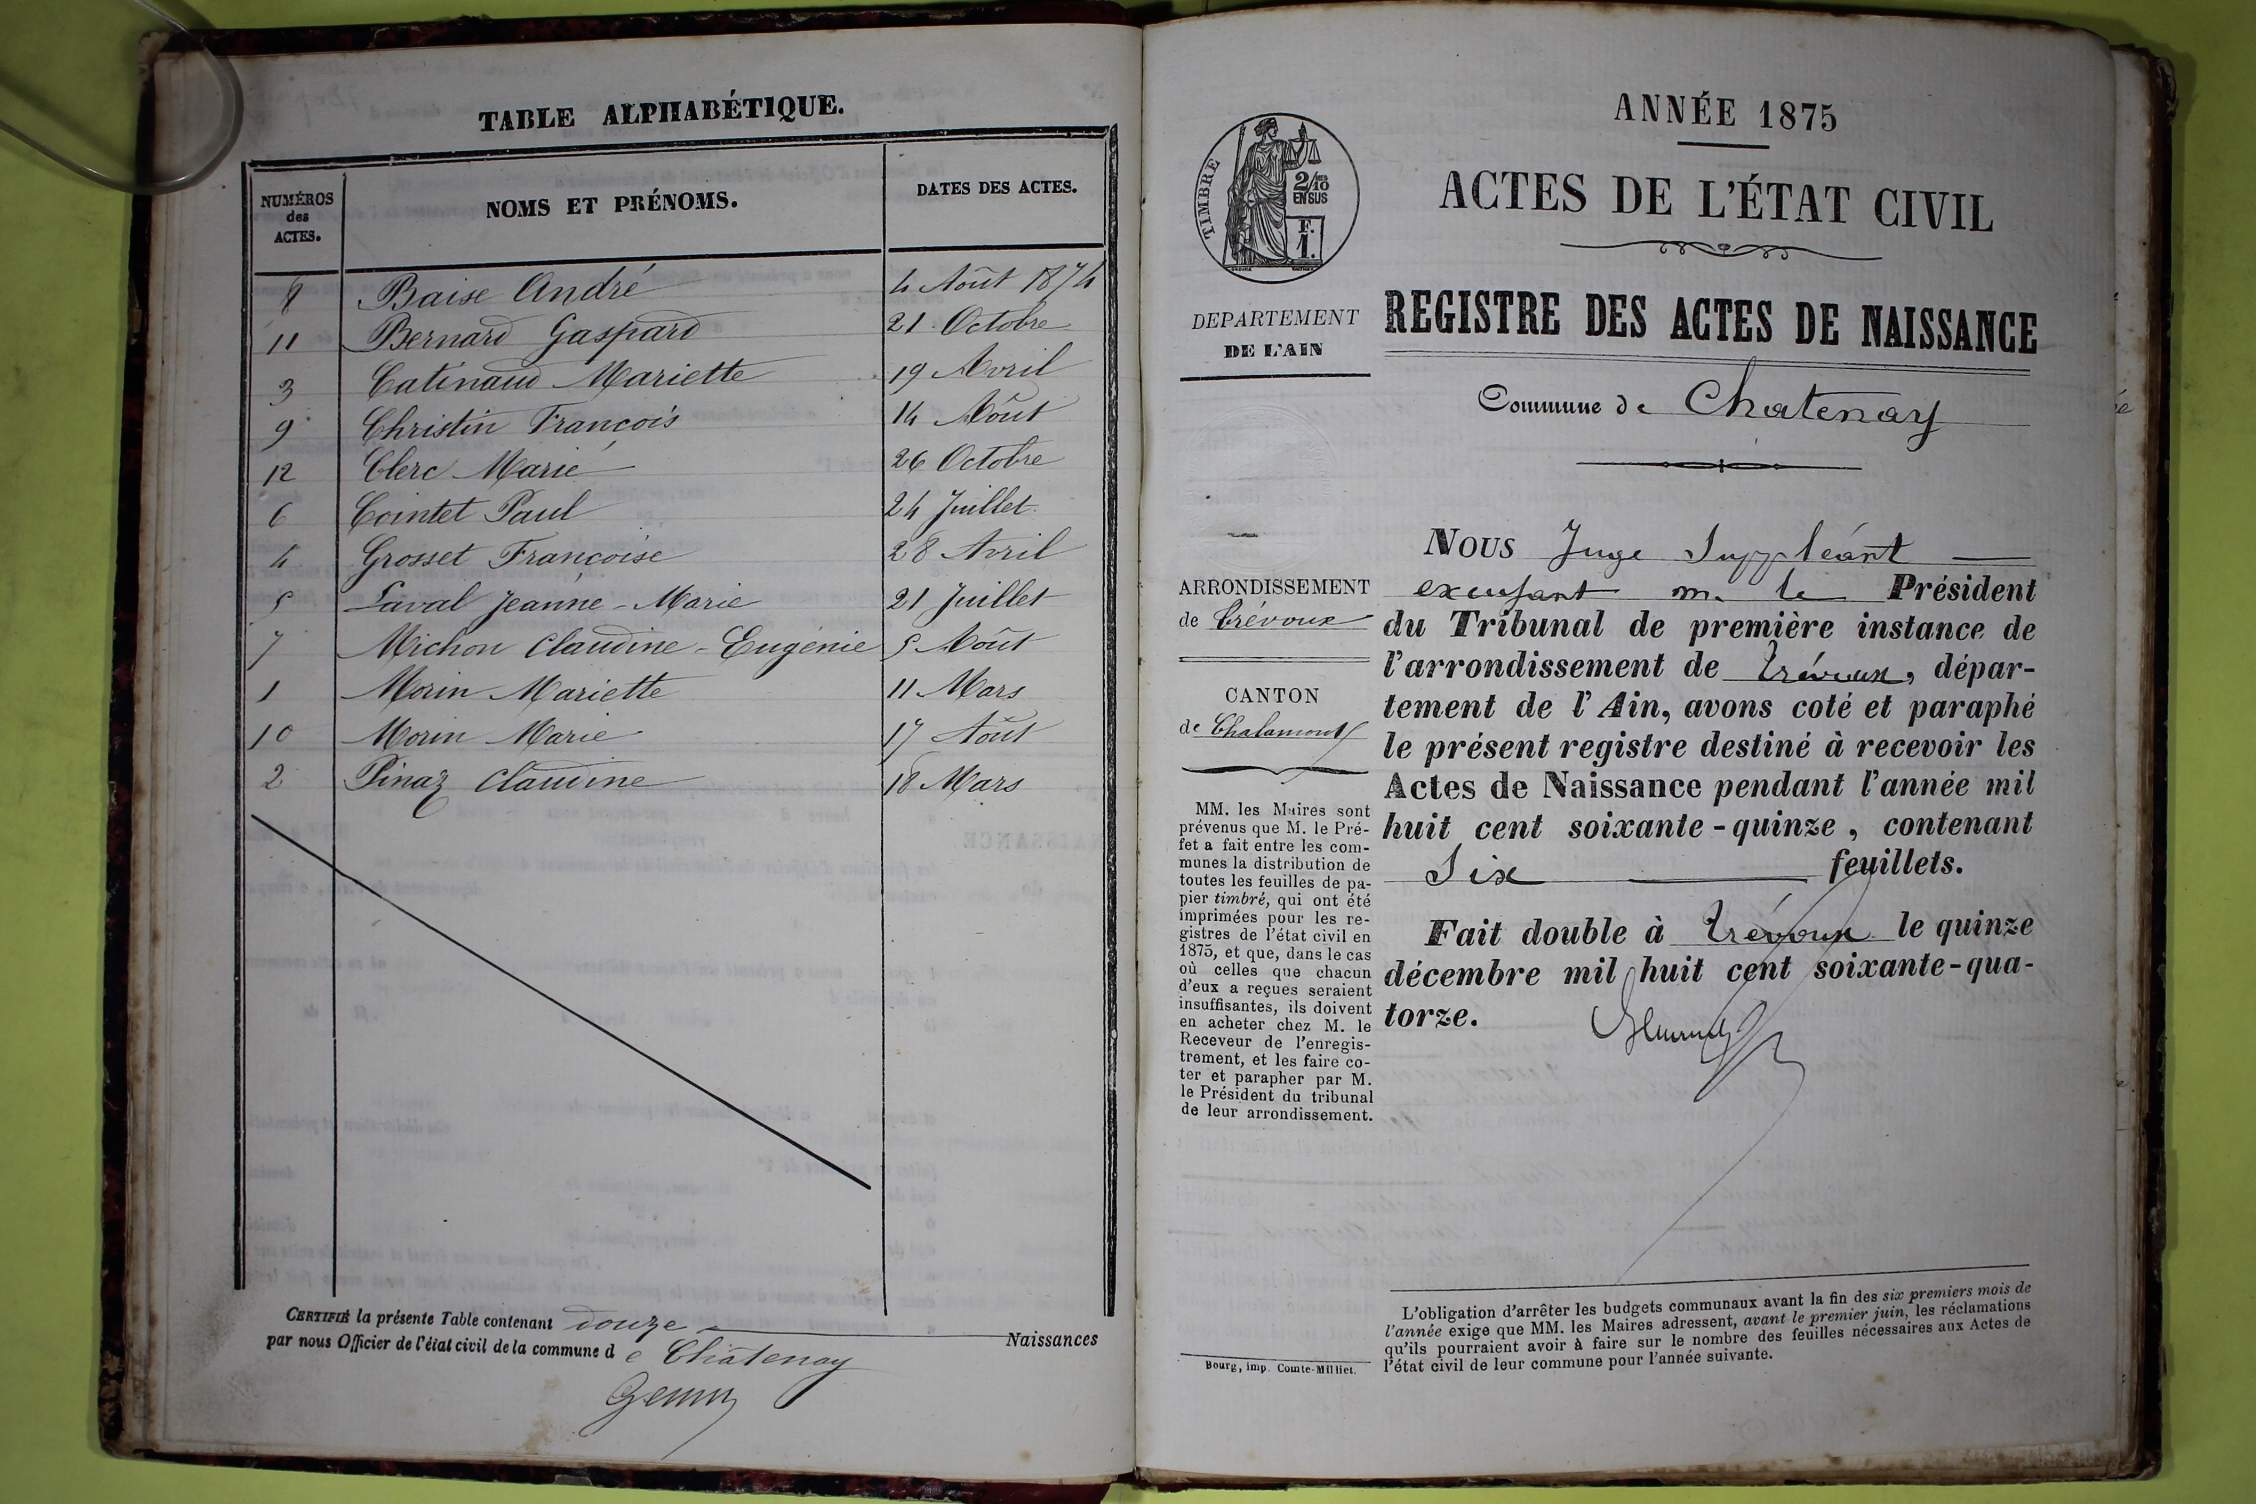 TABLE ALPHABÉTIQUE.
NUMÉROS des ACTES. NOMS ET PRÉNOMS. DATES DES ACTES.
8 Baise André 4 Août 1874
11 Bernard Gaspard 21 Octobre
3 Catinaud Mariette 19 Avril
9 Christin François 14 Août
12 Clerc Marie 26 Octobre
6 Cointet Paul 24 Juillet
4 Grosset Françoise 28 Avril
5 Laval Jeanne-Marie 21 Juillet
7 Michon Claudine-Eugénie 5 Août
1 Morin Mariette 11 Mars
10 Morin Marie 17 Août
2 Pinaz Claudine 18 Mars
CERTIFIÉ la présente Table contenant douze Naissances
par nous Officier de l'état civil de la commune de Châtenay
ANNÉE 1875
ACTES DE L'ÉTAT CIVIL
TIMBRE
2/10 ES
EN SUS
F.
1.
REGISTRE DES ACTES DE NAISSANCE
DEPARTEMENT
DE L'AIN
Commune de Chatenay
ARRONDISSEMENT
de Trévoux
CANTON
de Chalamont
MM. les Maires sont
prévenus que M. le Pré-
fet a fait entre les com-
munes la distribution de
toutes les feuilles de pa-
pier timbré, qui ont été
imprimées pour les re-
gistres de l'état civil en
1875, et que, dans le cas
où celles que chacun
d'eux a reçues seraient
insuffisantes, ils doivent
en acheter chez M. le
Receveur de l'enregis-
trement, et les faire co-
ter et parapher par M.
le Président du tribunal
de leur arrondissement.
NOUS Juge Suppléant
excusant m. le Président
du Tribunal de première instance de
l'arrondissement de Trévoux, dépar-
tement de l'Ain, avons coté et paraphé
le présent registre destiné à recevoir les
Actes de Naissance pendant l'année mil
huit cent soixante-quinze, contenant
Six feuillets.
Fait double à Trévoux le quinze
décembre mil huit cent soixante-qua-
torze.
L'obligation d'arrêter les budgets communaux avant la fin des six premiers mois de
l'année exige que MM. les Maires adressent, avant le premier juin, les réclamations
qu'ils pourraient avoir à faire sur le nombre des feuilles nécessaires aux Actes de
l'état civil de leur commune pour l'année suivante.
Bourg, imp. Comte-Milliet.